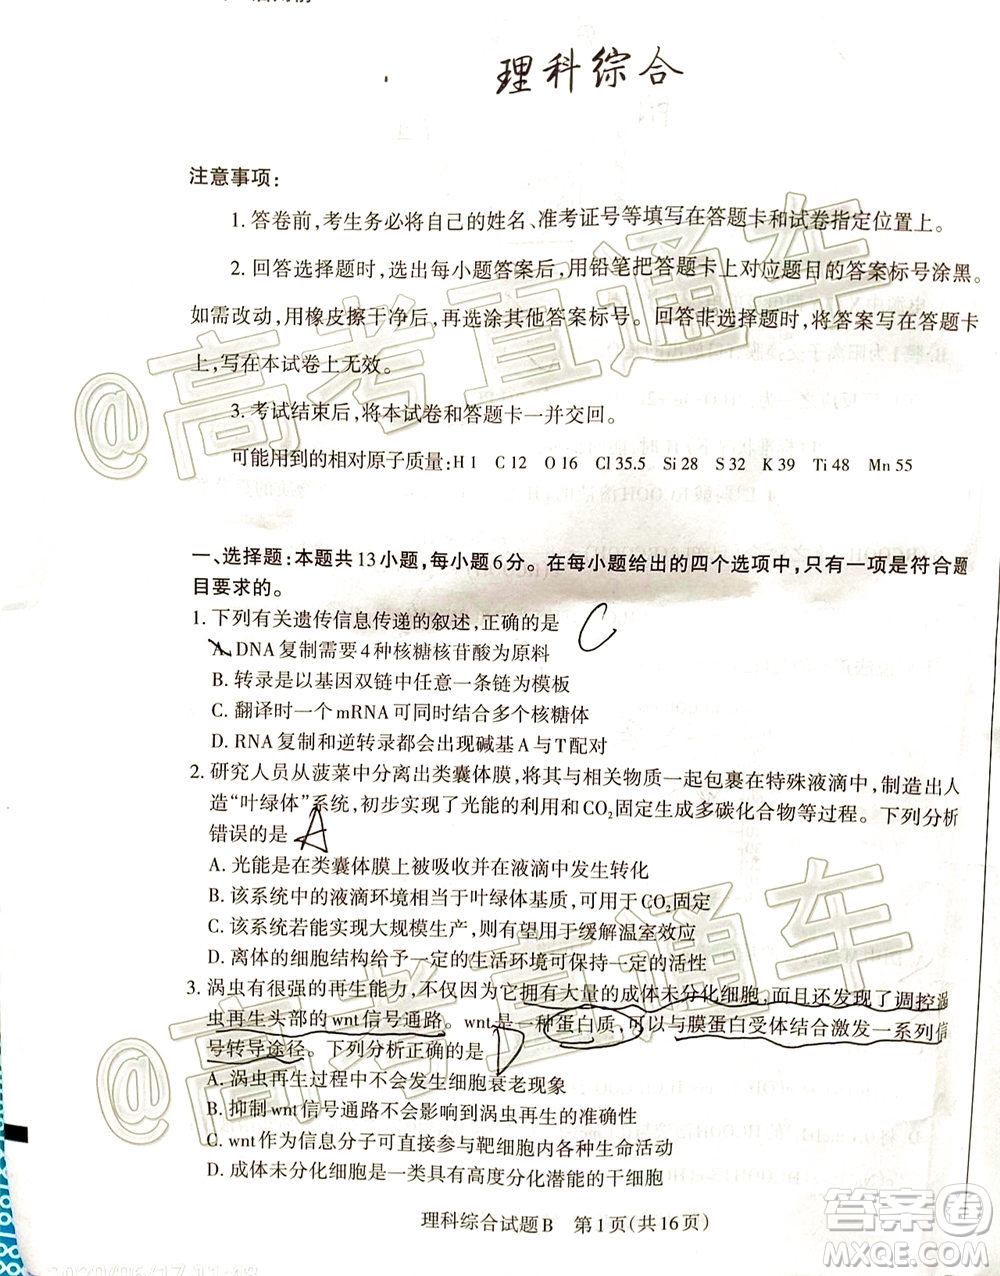 理科综合
注意事项：
1. 答卷前，考生务必将自己的姓名、准考证号等填写在答题卡和试卷指定位置上。
2. 回答选择题时，选出每小题答案后，用铅笔把答题卡上对应题目的答案标号涂黑。
如需改动，用橡皮擦干净后，再选涂其他答案标号。回答非选择题时，将答案写在答题卡
上，写在本试卷上无效。
3. 考试结束后，将本试卷和答题卡一并交回。
可能用到的相对原子质量：H 1 C 12 O 16 Cl 35.5 Si 28 S 32 K 39 Ti 48 Mn 55
一、选择题：本题共13小题，每小题6分。在每小题给出的四个选项中，只有一项是符合题
目要求的。
1. 下列有关遗传信息传递的叙述，正确的是 C
A. DNA复制需要4种核糖核苷酸为原料
B. 转录是以基因双链中任意一条链为模板
C. 翻译时一个mRNA可同时结合多个核糖体
D. RNA复制和逆转录都会出现碱基A与T配对
2. 研究人员从菠菜中分离出类囊体膜，将其与相关物质一起包裹在特殊液滴中，制造出人
造“叶绿体”系统，初步实现了光能的利用和CO₂固定生成多碳化合物等过程。下列分析
错误的是 A
A. 光能是在类囊体膜上被吸收并在液滴中发生转化
B. 该系统中的液滴环境相当于叶绿体基质，可用于CO₂固定
C. 该系统若能实现大规模生产，则有望用于缓解温室效应
D. 离体的细胞结构给予一定的生活环境可保持一定的活性
3. 涡虫有很强的再生能力，不仅因为它拥有大量的成体未分化细胞，而且还发现了调控涡
虫再生头部的wnt信号通路。wnt是一种蛋白质，可以与膜蛋白受体结合激发一系列信
号转导途径。下列分析正确的是 D
A. 涡虫再生过程中不会发生细胞衰老现象
B. 抑制wnt信号通路不会影响到涡虫再生的准确性
C. wnt作为信息分子可直接参与靶细胞内各种生命活动
D. 成体未分化细胞是一类具有高度分化潜能的干细胞
理科综合试题B 第1页（共16页）
@高考直通车
@高考直通车
答案圈
MXQE.COM